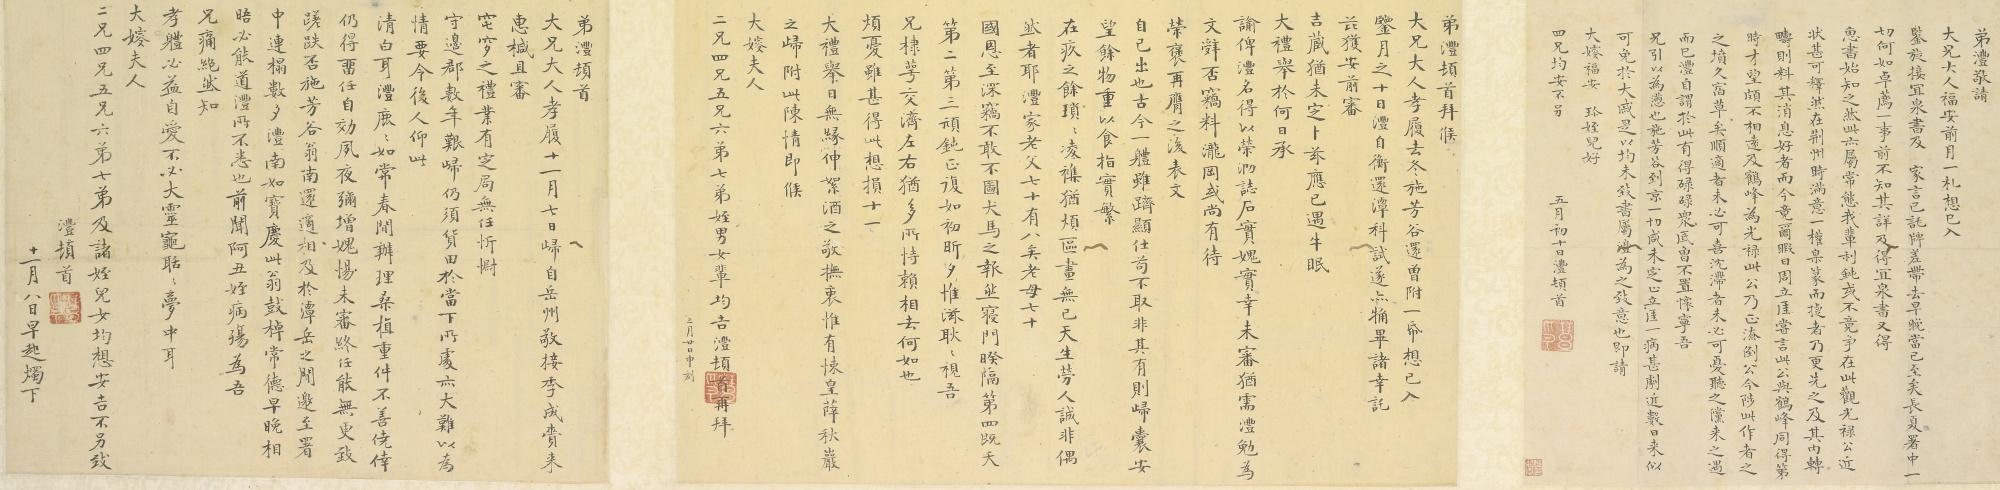 弟澧敬請
大兄大人福安前月一札想已入
鑒旋接宜泉書及　家言已託牌差帶去早晚當已至矣長夏署中一
切何如卓薦一事前不知其詳及得宜泉書又得
惠書始知之然此六屬常態我輩利鈍或不竟爭在此觀光祿公近
狀甚可釋然在荆州時滿意一權臬篆而擾者乃更先之及其內轉
疇則料其消息好者而今竟爾暇日周立厓嘗言此公與鶴峰同得第
時才望頗不相遠及鶴峰為光祿此公乃正淪倒公今陟此作者之
墳久宿草矣順適者未必可喜沈滯者未必可憂聽之儻來之遇
而已澧自謂於此有得碌碌眾底胃不置懷寧吾
兄引以為慰也施芳谷到京一切咸未定正立厓一病甚劇近數日來似
可免於大戚是以均未致書屬澧為之致意也即請
大嫂福安　玲姪兒好
四兄均安不另
五月初十日澧頓首
弟澧頓首拜候
大兄大人孝履去冬施芳谷還曾附一函想已入
鑒月之十日澧自衡還潭科試遂亦稍畢諸幸託
芘獲安前審
吉藏猶未定卜茲應已遇牛眠
大禮舉於何日承
諭俾澧名得以榮泐誌石實媿實幸未審猶需澧勉為
文辭否竊料瀧岡或尚有待
榮襃再膺之後表文
自己出也古今一體雖躋顯仕苟不取非其有則歸囊安
望餘物重以食指實繁
在疚之餘瑣瑣凌襍猶煩區畫無已天生勞人誠非偶
然者耶澧家老父七十有八矣老母七十
國恩至深竊不敢不圖犬馬之報然寢門睽隔第四既夭
第二第三頑鈍正復如初昕夕惟滋耿耿視吾
兄棣萼交濟左右猶多所恃賴相去何如也
煩憂雖甚得此想損十一
大禮舉日無緣伸絮酒之敬撫衷惟有悚皇薛秋巖
之歸附此陳情即候
大嫂夫人
二兄四兄五兄六弟七弟姪男女輩均吉澧頓首再拜
二月廿日申刻
弟澧頓首
大兄大人孝履十一月七日歸自岳州敬接季成賫來
惠槭且審
窀穸之禮業有定局無任忻慰
守邊郡數年艱歸仍須貨田於當下所處亦大難以為
情要今後人仰此
清白耳澧鹿鹿如常春閒辦理桑植重件不善僥倖
仍得畱任自効夙夜彌增媿惕未審終任能無更致
蹉跌否施芳谷翁南還適相及於潭岳之閒邀至署
中連榻數夕澧南如寶慶此翁鼓棹常德早晚相
晤必能道澧所不悉也前聞阿丑姪病殤為吾
兄痛絕然知
孝軆必益自愛不必大靈龜聒聒夢中耳
大嫂夫人
二兄四兄五兄六弟七弟及諸姪兒女均想安吉不另致
澧頓首
十一月八日早起燭下